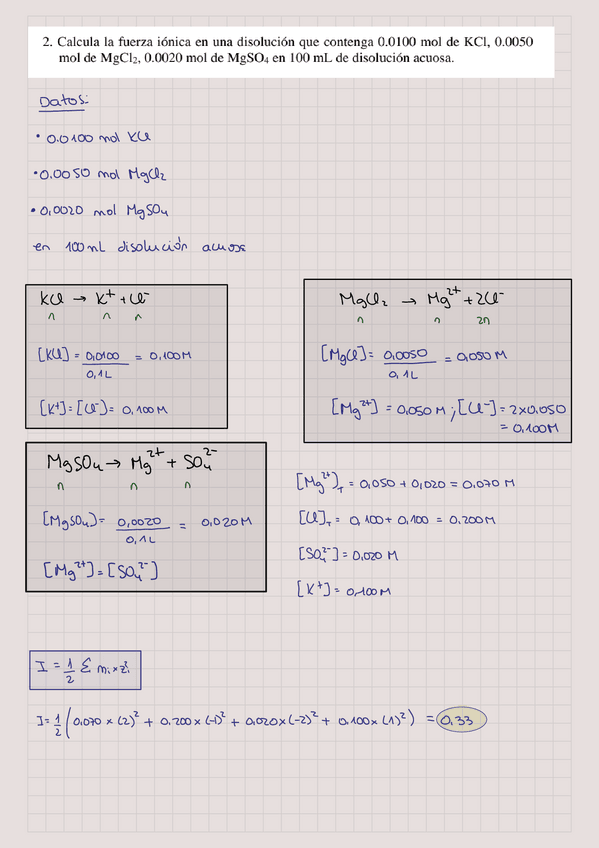 2. Calcula la fuerza iónica en una disolución que contenga 0.0100 mol de KCl, 0.0050
mol de MgCl₂, 0.0020 mol de MgSO₄ en 100 mL de disolución acuosa.
Datos:
• 0.0100 mol KCl
• 0.0050 mol MgCl₂
• 0,0020 mol MgSO₄
en 100mL disolución acuosa
KCl → K⁺ + Cl⁻
n n n
[KCl] = 0,0100 / 0,1L = 0,100M
[K⁺] = [Cl⁻] = 0,100M
MgCl₂ → Mg²⁺ + 2Cl⁻
n n 2n
[MgCl] = 0,0050 / 0,1L = 0,050M
[Mg²⁺] = 0,050M ; [Cl⁻] = 2x0,050
= 0,100M
MgSO₄ → Mg²⁺ + SO₄²⁻
n n n
[MgSO₄] = 0,0020 / 0,1L = 0,020M
[Mg²⁺] = [SO₄²⁻]
[Mg²⁺]T = 0,050 + 0,020 = 0,070 M
[Cl]T = 0,100 + 0,100 = 0,200M
[SO₄²⁻] = 0,020 M
[K⁺] = 0,100M
I = 1/2 Σ mᵢ x zᵢ²
I = 1/2 (0,070 x (2)² + 0,200 x (-1)² + 0,020 x (-2)² + 0,100 x (1)²) = 0,33